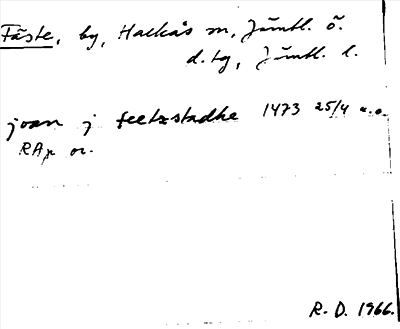 Fäste, by, Hackås sn, Jämtl. ö.
d. tg, Jämtl. l.
joan j feetzstadhe 1473 25/4 u.o.
RAp or.
R. D. 1966.